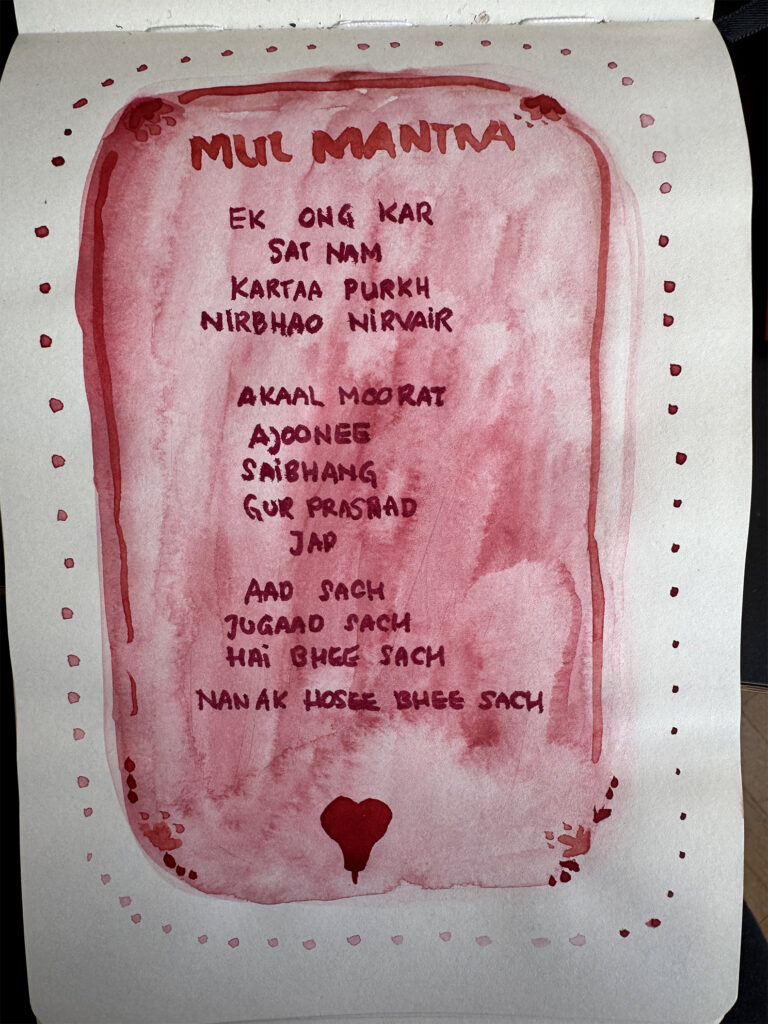 MUL MANTRA
EK ONG KAR
SAT NAM
KARTAA PURKH
NIRBHAO NIRVAIR
AKAAL MOORAT
AJOONEE
SAiBHANG
GUR PRASHAD
JAP
AAD SACH
JUGAAD SACH
HAi BHEE SACH
NANAK HOSEE BHEE SACH